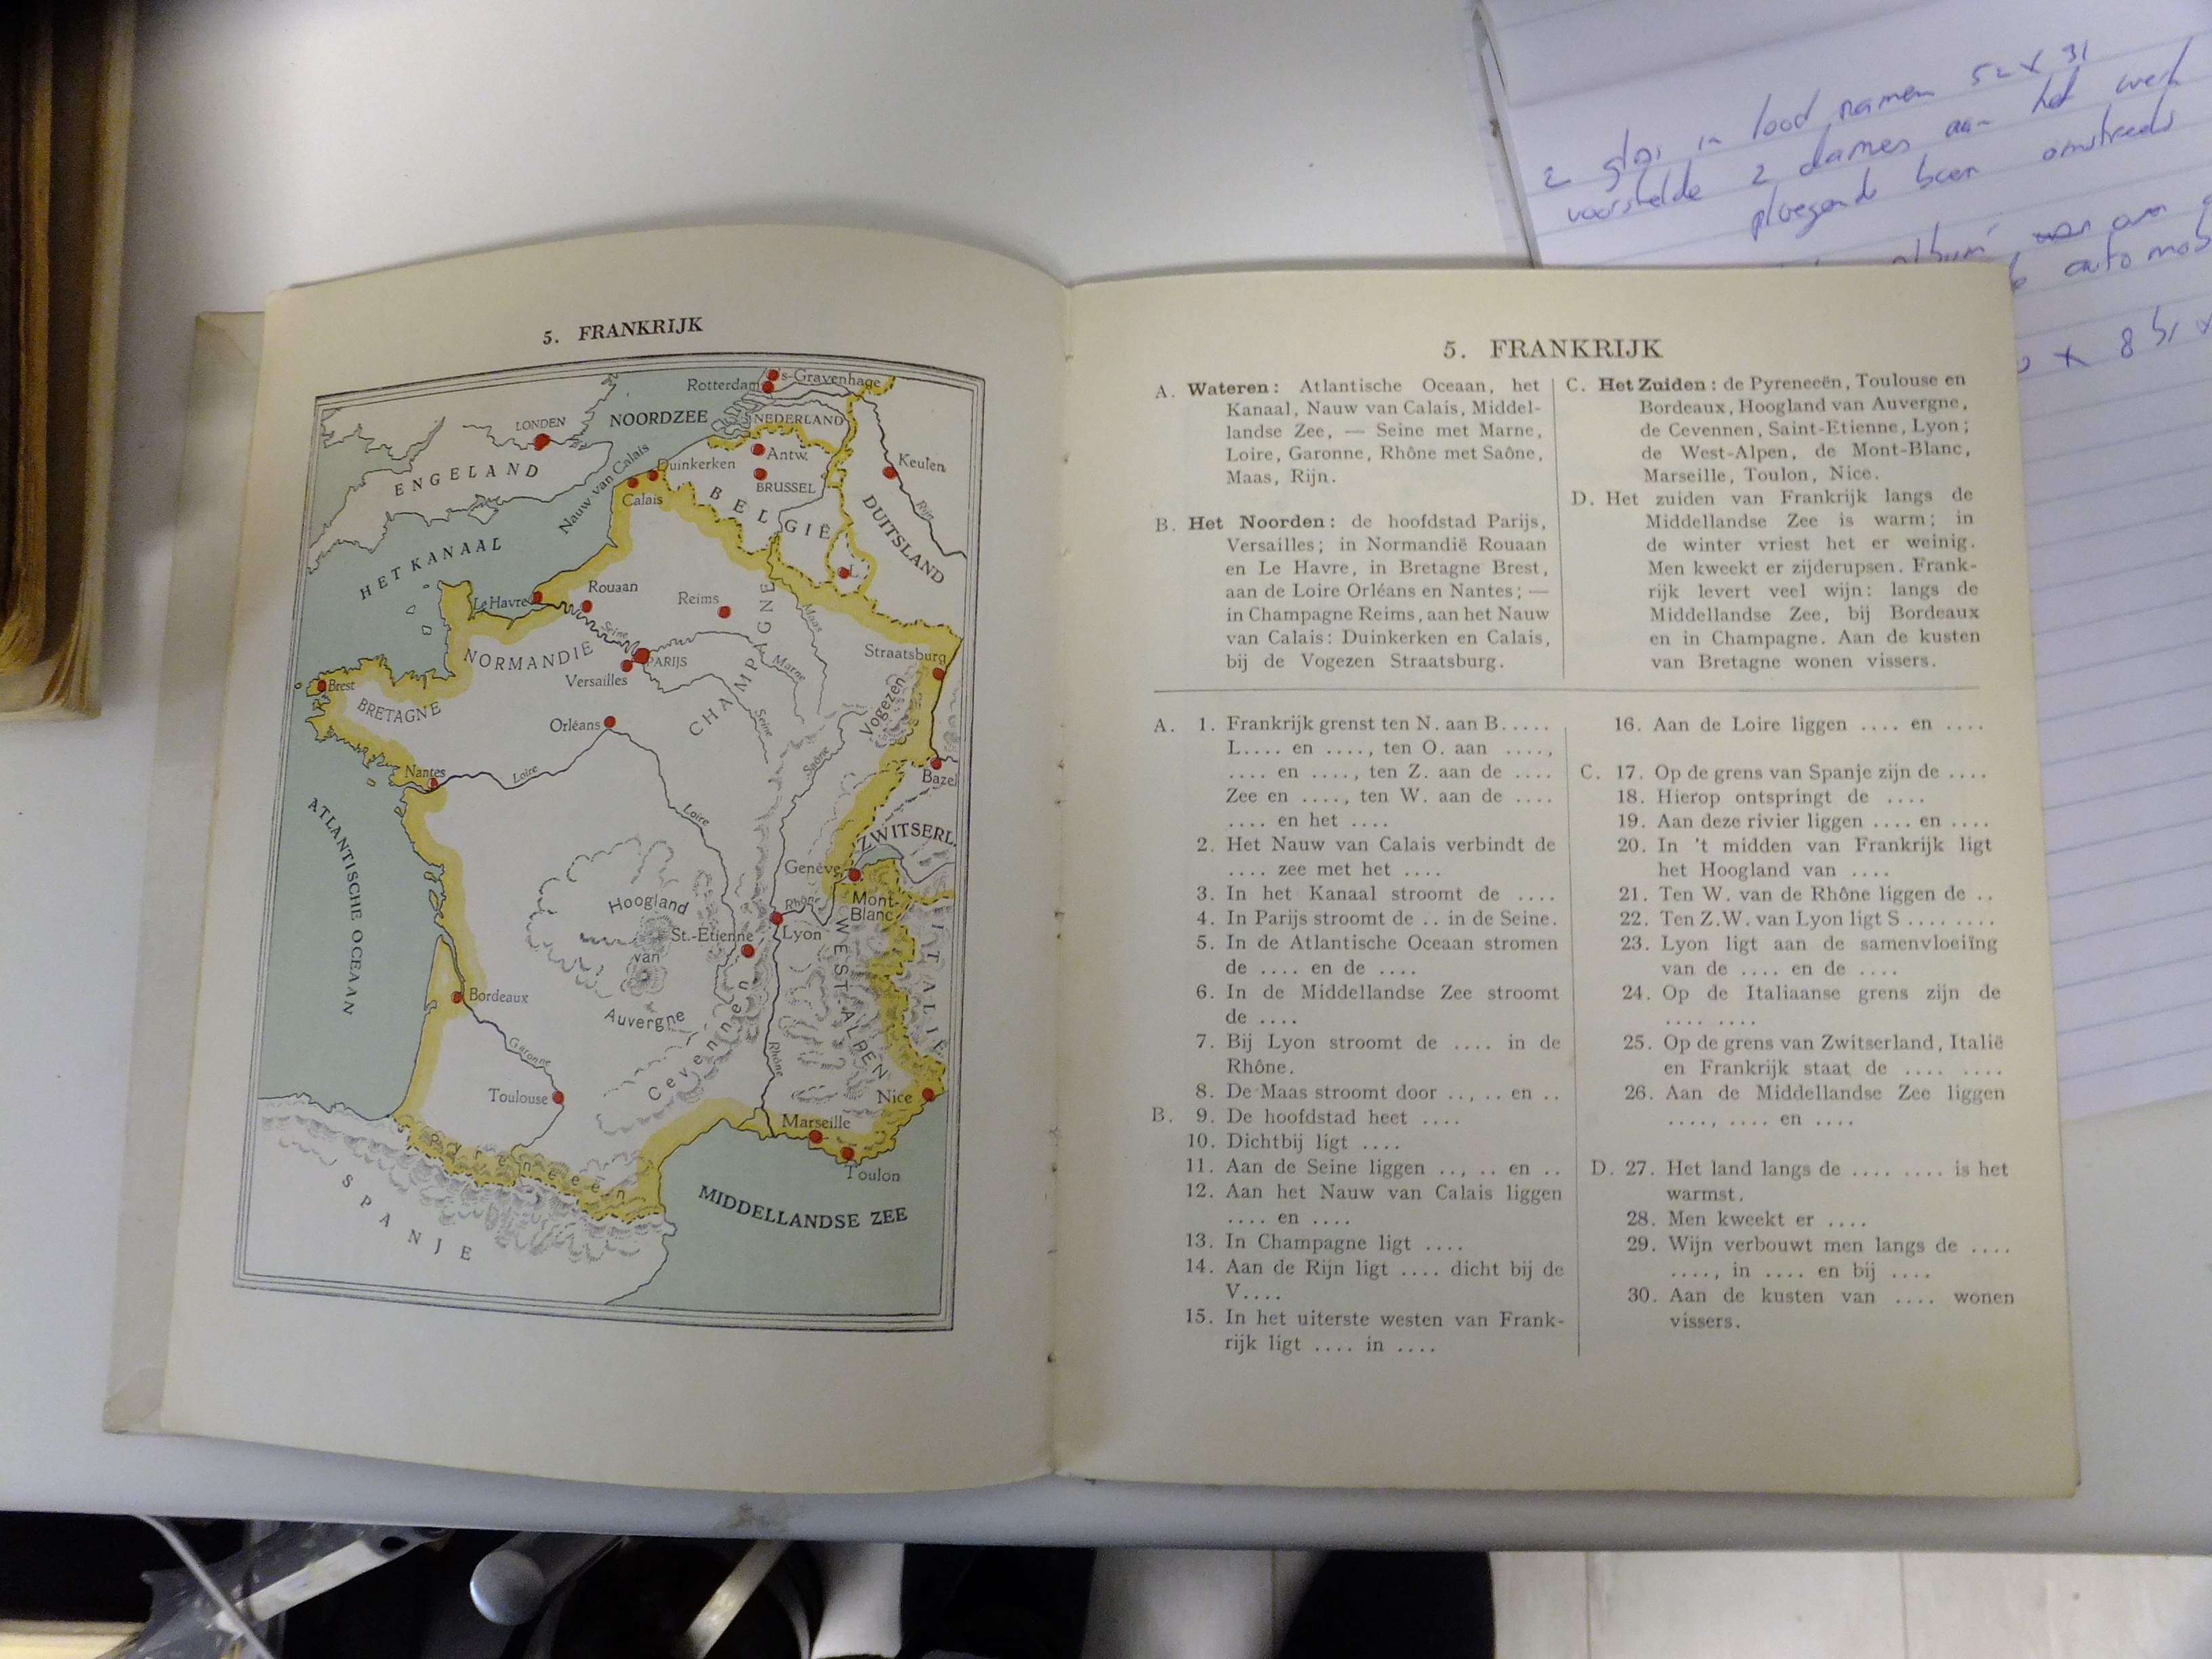 5. FRANKRIJK
Rotterdam
s-Gravenhage
LONDEN
NOORDZEE
NEDERLAND
ENGELAND
Nauw van Calais
Duinkerken
Antw.
Keulen
BRUSSEL
Calais
BELGIË
Rijn
DUITSLAND
HET KANAAL
L.
Le Havre
Rouaan
Reims
Seine
Maas
NORMANDIË
PARIJS
Marne
Straatsburg
Versailles
CHAMPAGNE
Brest
BRETAGNE
Orléans
Seine
Vogezen
Saône
Nantes
Loire
Bazel
ATLANTISCHE OCEAAN
Loire
ZWITSERL.
Genève
Hoogland
Rhône
Mont-
Blanc
St.-Etienne
Lyon
van
WEST-ALPEN
ITALIË
Bordeaux
Auvergne
Cevennen
Garonne
Rhône
Toulouse
Nice
Marseille
Pyreneeën
Toulon
SPANJE
MIDDELLANDSE ZEE
5. FRANKRIJK
A. Wateren: Atlantische Oceaan, het
Kanaal, Nauw van Calais, Middel-
landse Zee, — Seine met Marne,
Loire, Garonne, Rhône met Saône,
Maas, Rijn.
B. Het Noorden: de hoofdstad Parijs,
Versailles; in Normandië Rouaan
en Le Havre, in Bretagne Brest,
aan de Loire Orléans en Nantes; —
in Champagne Reims, aan het Nauw
van Calais: Duinkerken en Calais,
bij de Vogezen Straatsburg.
C. Het Zuiden: de Pyreneeën, Toulouse en
Bordeaux, Hoogland van Auvergne,
de Cevennen, Saint-Etienne, Lyon;
de West-Alpen, de Mont-Blanc,
Marseille, Toulon, Nice.
D. Het zuiden van Frankrijk langs de
Middellandse Zee is warm; in
de winter vriest het er weinig.
Men kweekt er zijderupsen. Frank-
rijk levert veel wijn: langs de
Middellandse Zee, bij Bordeaux
en in Champagne. Aan de kusten
van Bretagne wonen vissers.
A. 1. Frankrijk grenst ten N. aan B.....
L.... en ...., ten O. aan ....,
.... en ...., ten Z. aan de ....
Zee en ...., ten W. aan de ....
.... en het ....
2. Het Nauw van Calais verbindt de
.... zee met het ....
3. In het Kanaal stroomt de ....
4. In Parijs stroomt de .. in de Seine.
5. In de Atlantische Oceaan stromen
de .... en de ....
6. In de Middellandse Zee stroomt
de ....
7. Bij Lyon stroomt de .... in de
Rhône.
8. De Maas stroomt door .., .. en ..
B. 9. De hoofdstad heet ....
10. Dichtbij ligt ....
11. Aan de Seine liggen .., .. en ..
12. Aan het Nauw van Calais liggen
.... en ....
13. In Champagne ligt ....
14. Aan de Rijn ligt .... dicht bij de
V....
15. In het uiterste westen van Frank-
rijk ligt .... in ....
16. Aan de Loire liggen .... en ....
C. 17. Op de grens van Spanje zijn de ....
18. Hierop ontspringt de ....
19. Aan deze rivier liggen .... en ....
20. In 't midden van Frankrijk ligt
het Hoogland van ....
21. Ten W. van de Rhône liggen de ..
22. Ten Z.W. van Lyon ligt S ........
23. Lyon ligt aan de samenvloeiïng
van de .... en de ....
24. Op de Italiaanse grens zijn de
.... ....
25. Op de grens van Zwitserland, Italië
en Frankrijk staat de .... ....
26. Aan de Middellandse Zee liggen
...., .... en ....
D. 27. Het land langs de .... .... is het
warmst.
28. Men kweekt er ....
29. Wijn verbouwt men langs de ....
...., in .... en bij ....
30. Aan de kusten van .... wonen
vissers.
2 in lood namen 52 x 31
voorstelde 2 dames aan het werk
ploegende boer omstreeks
album over
automob
x 8